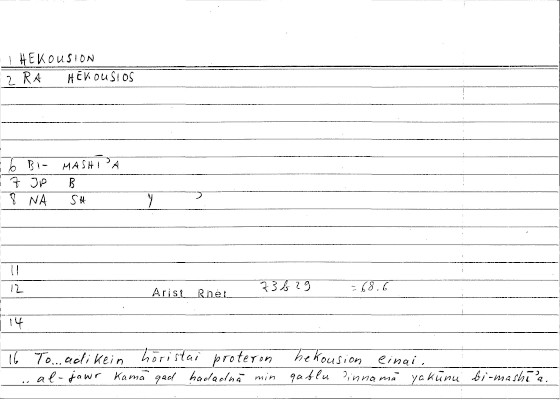 1 HEKOUSION
2 RA HEKOUSIOS
6 BI- MASHĪʾA
7 JP B
8 NA SH Y ʾ
11
12 Arist Rhet 73b29 =68.6
14
16 To...adikein hōristai proteron hekousion einai.
..al-jawr kamā qad ḥadadnā min qablu ʾinnamā yakūnu bi-mashīʾa.